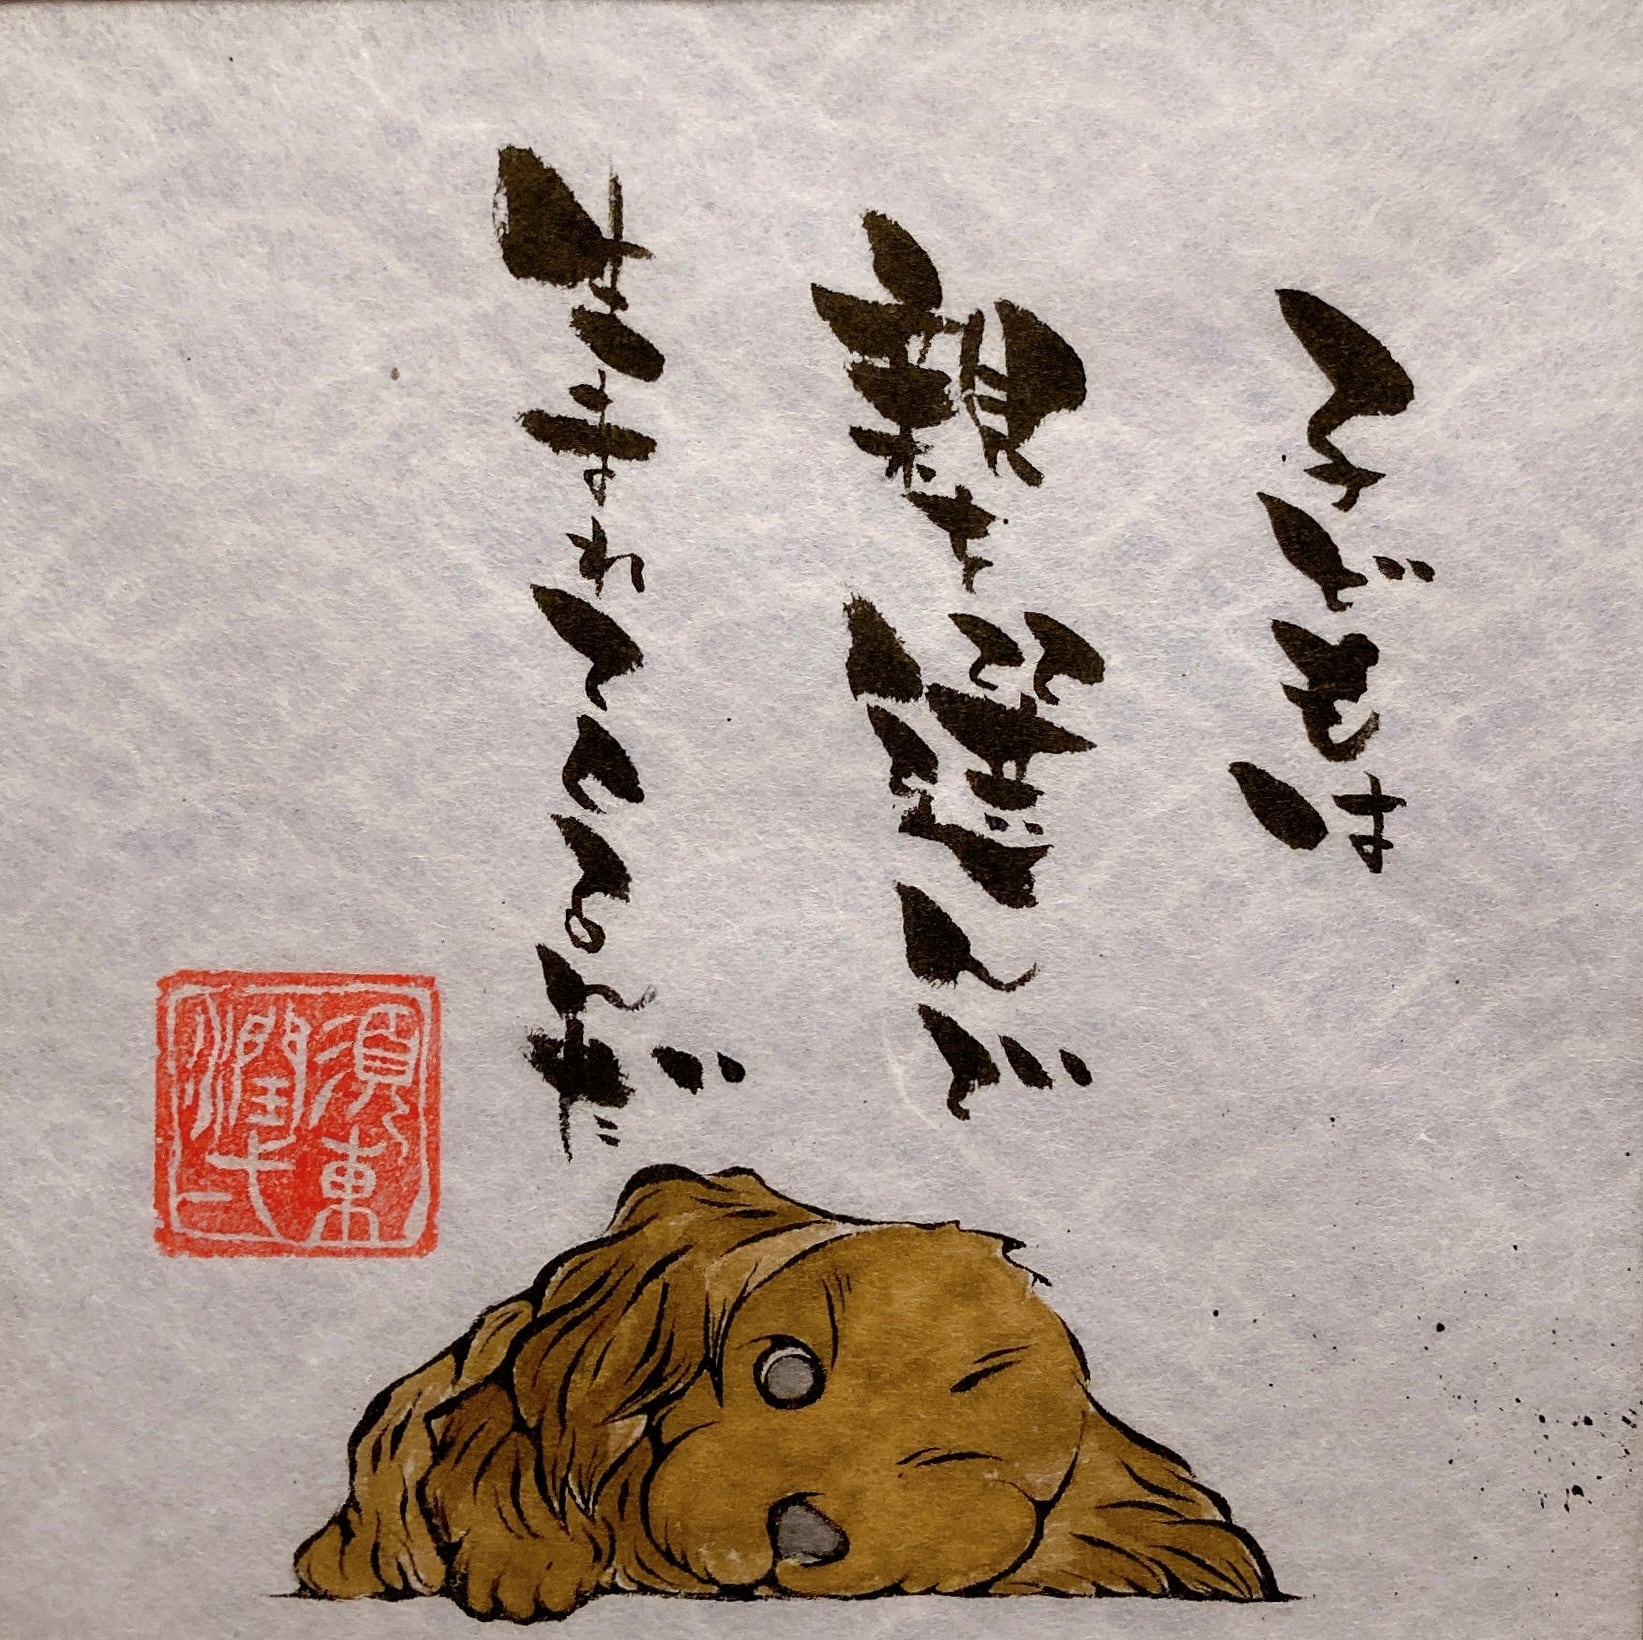 こどもは
親を選んで
生まれてくるんだ
須東
潤一